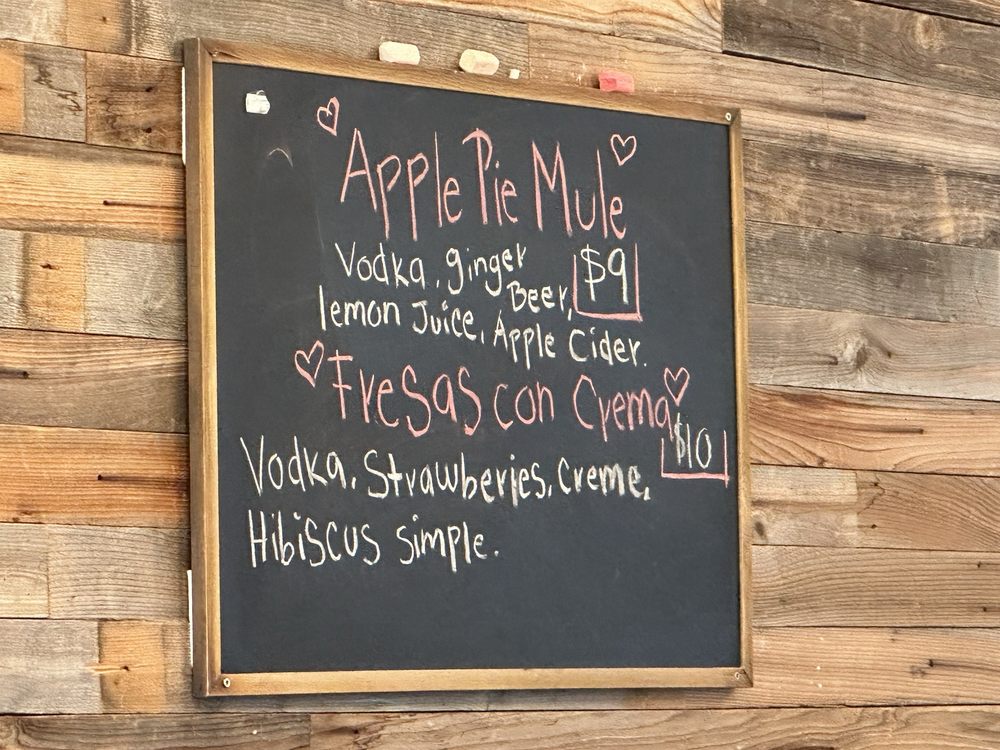 Apple Pie Mule
Vodka, ginger Beer, $9
lemon Juice, Apple Cider.
Fresas con Crema
$10
Vodka, Strawberries, Creme,
Hibiscus simple.